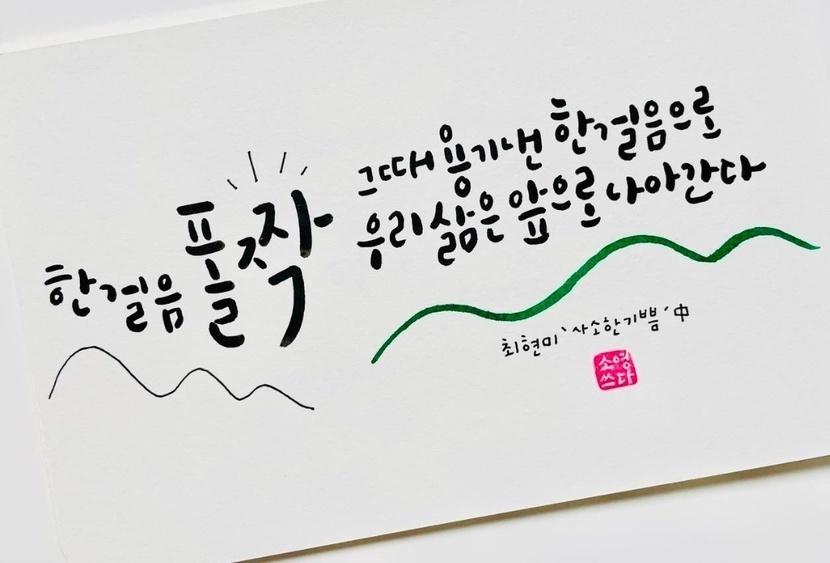 한걸음 폴짝
그때 용기낸 한걸음으로
우리 삶은 앞으로 나아간다
최현미 '사소한 기쁨' 中
소영
쓰다